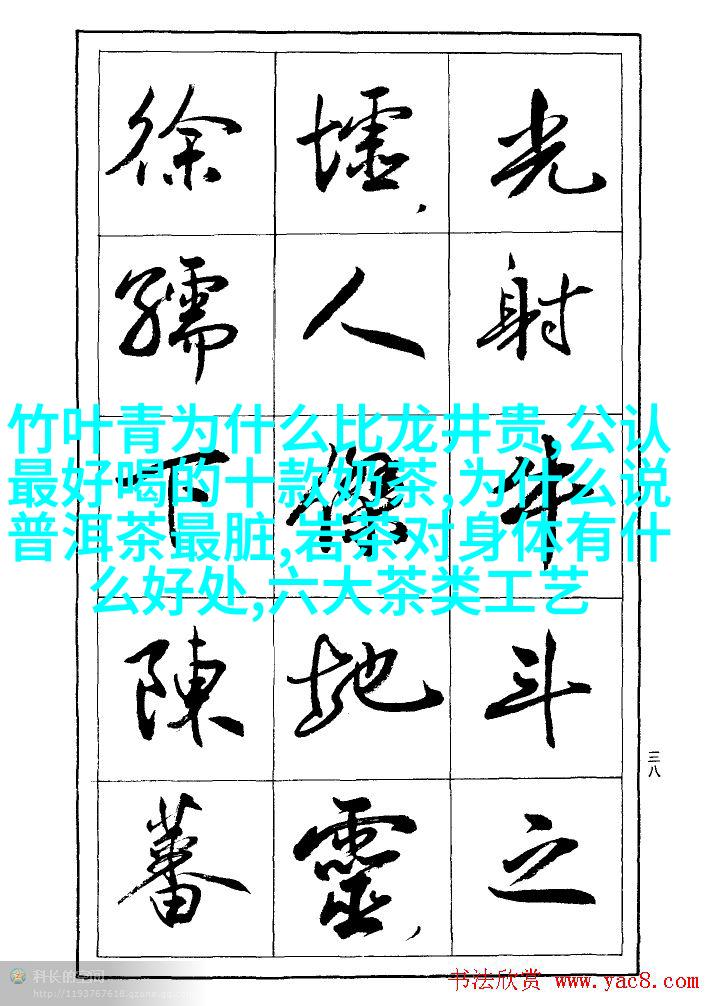 光射牛斗之
墟,人傑地靈,
徐孺下陳蕃
竹叶青为什么比龙井贵,公认
最好喝的十款奶茶,为什么说
普洱茶最脏,岩茶对身体有什
么好处,六大茶类工艺
三八
科长的空间
http://1193767618.qzone.qq.com
书法欣赏 www.yac8.com